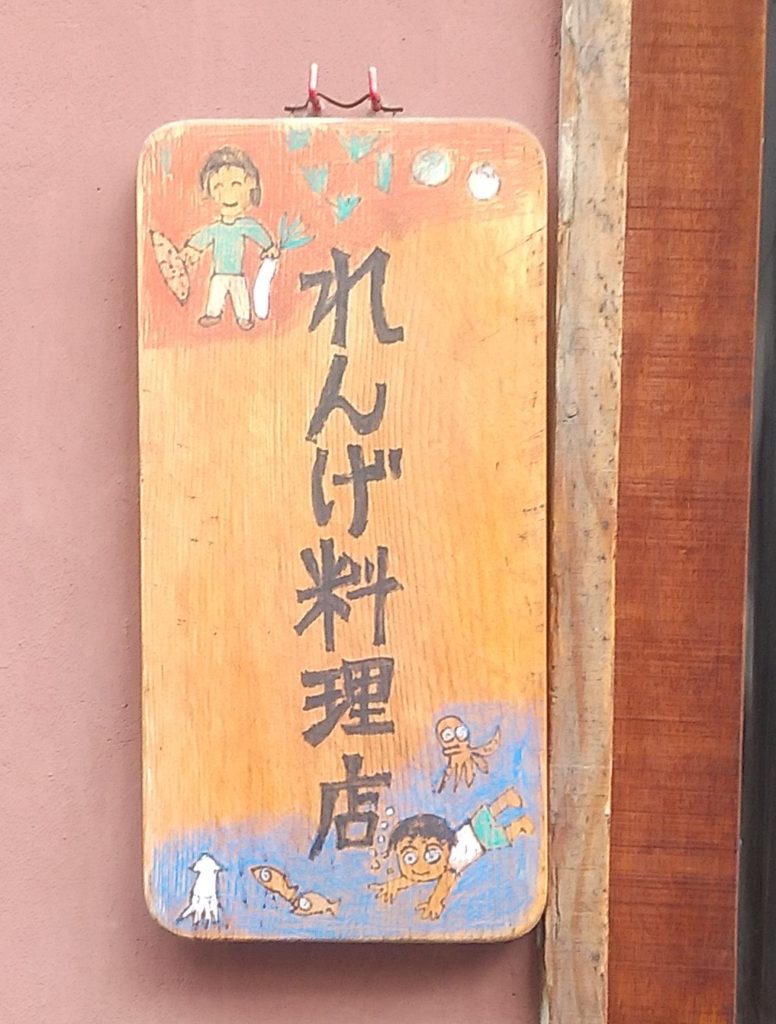 れんげ料理店